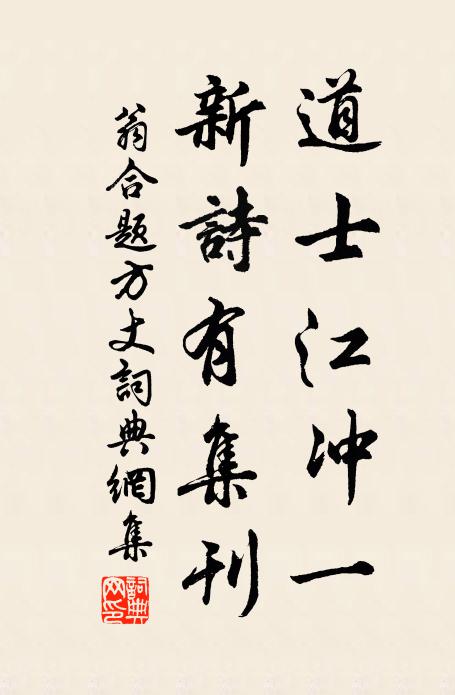 道士江冲一
新詩有集刊
翁合題方丈詞典網集
詞典网印